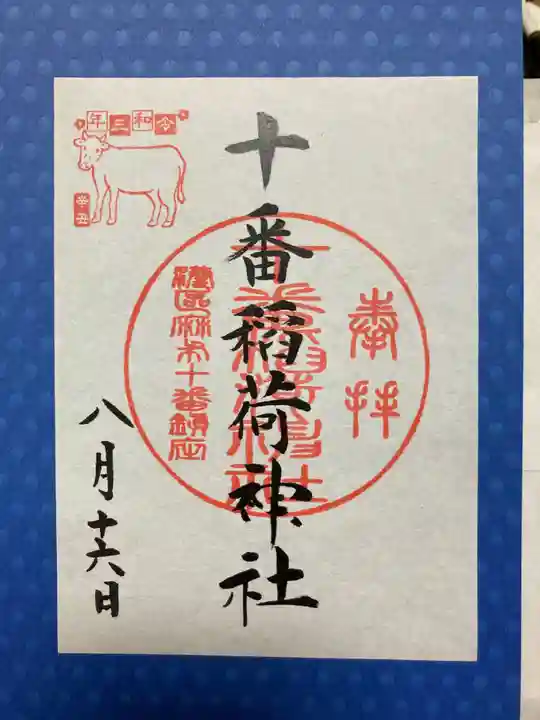 奉拝
十番稲荷神社
港区麻布十番鎮座
八月十六日
令和三年
辛丑